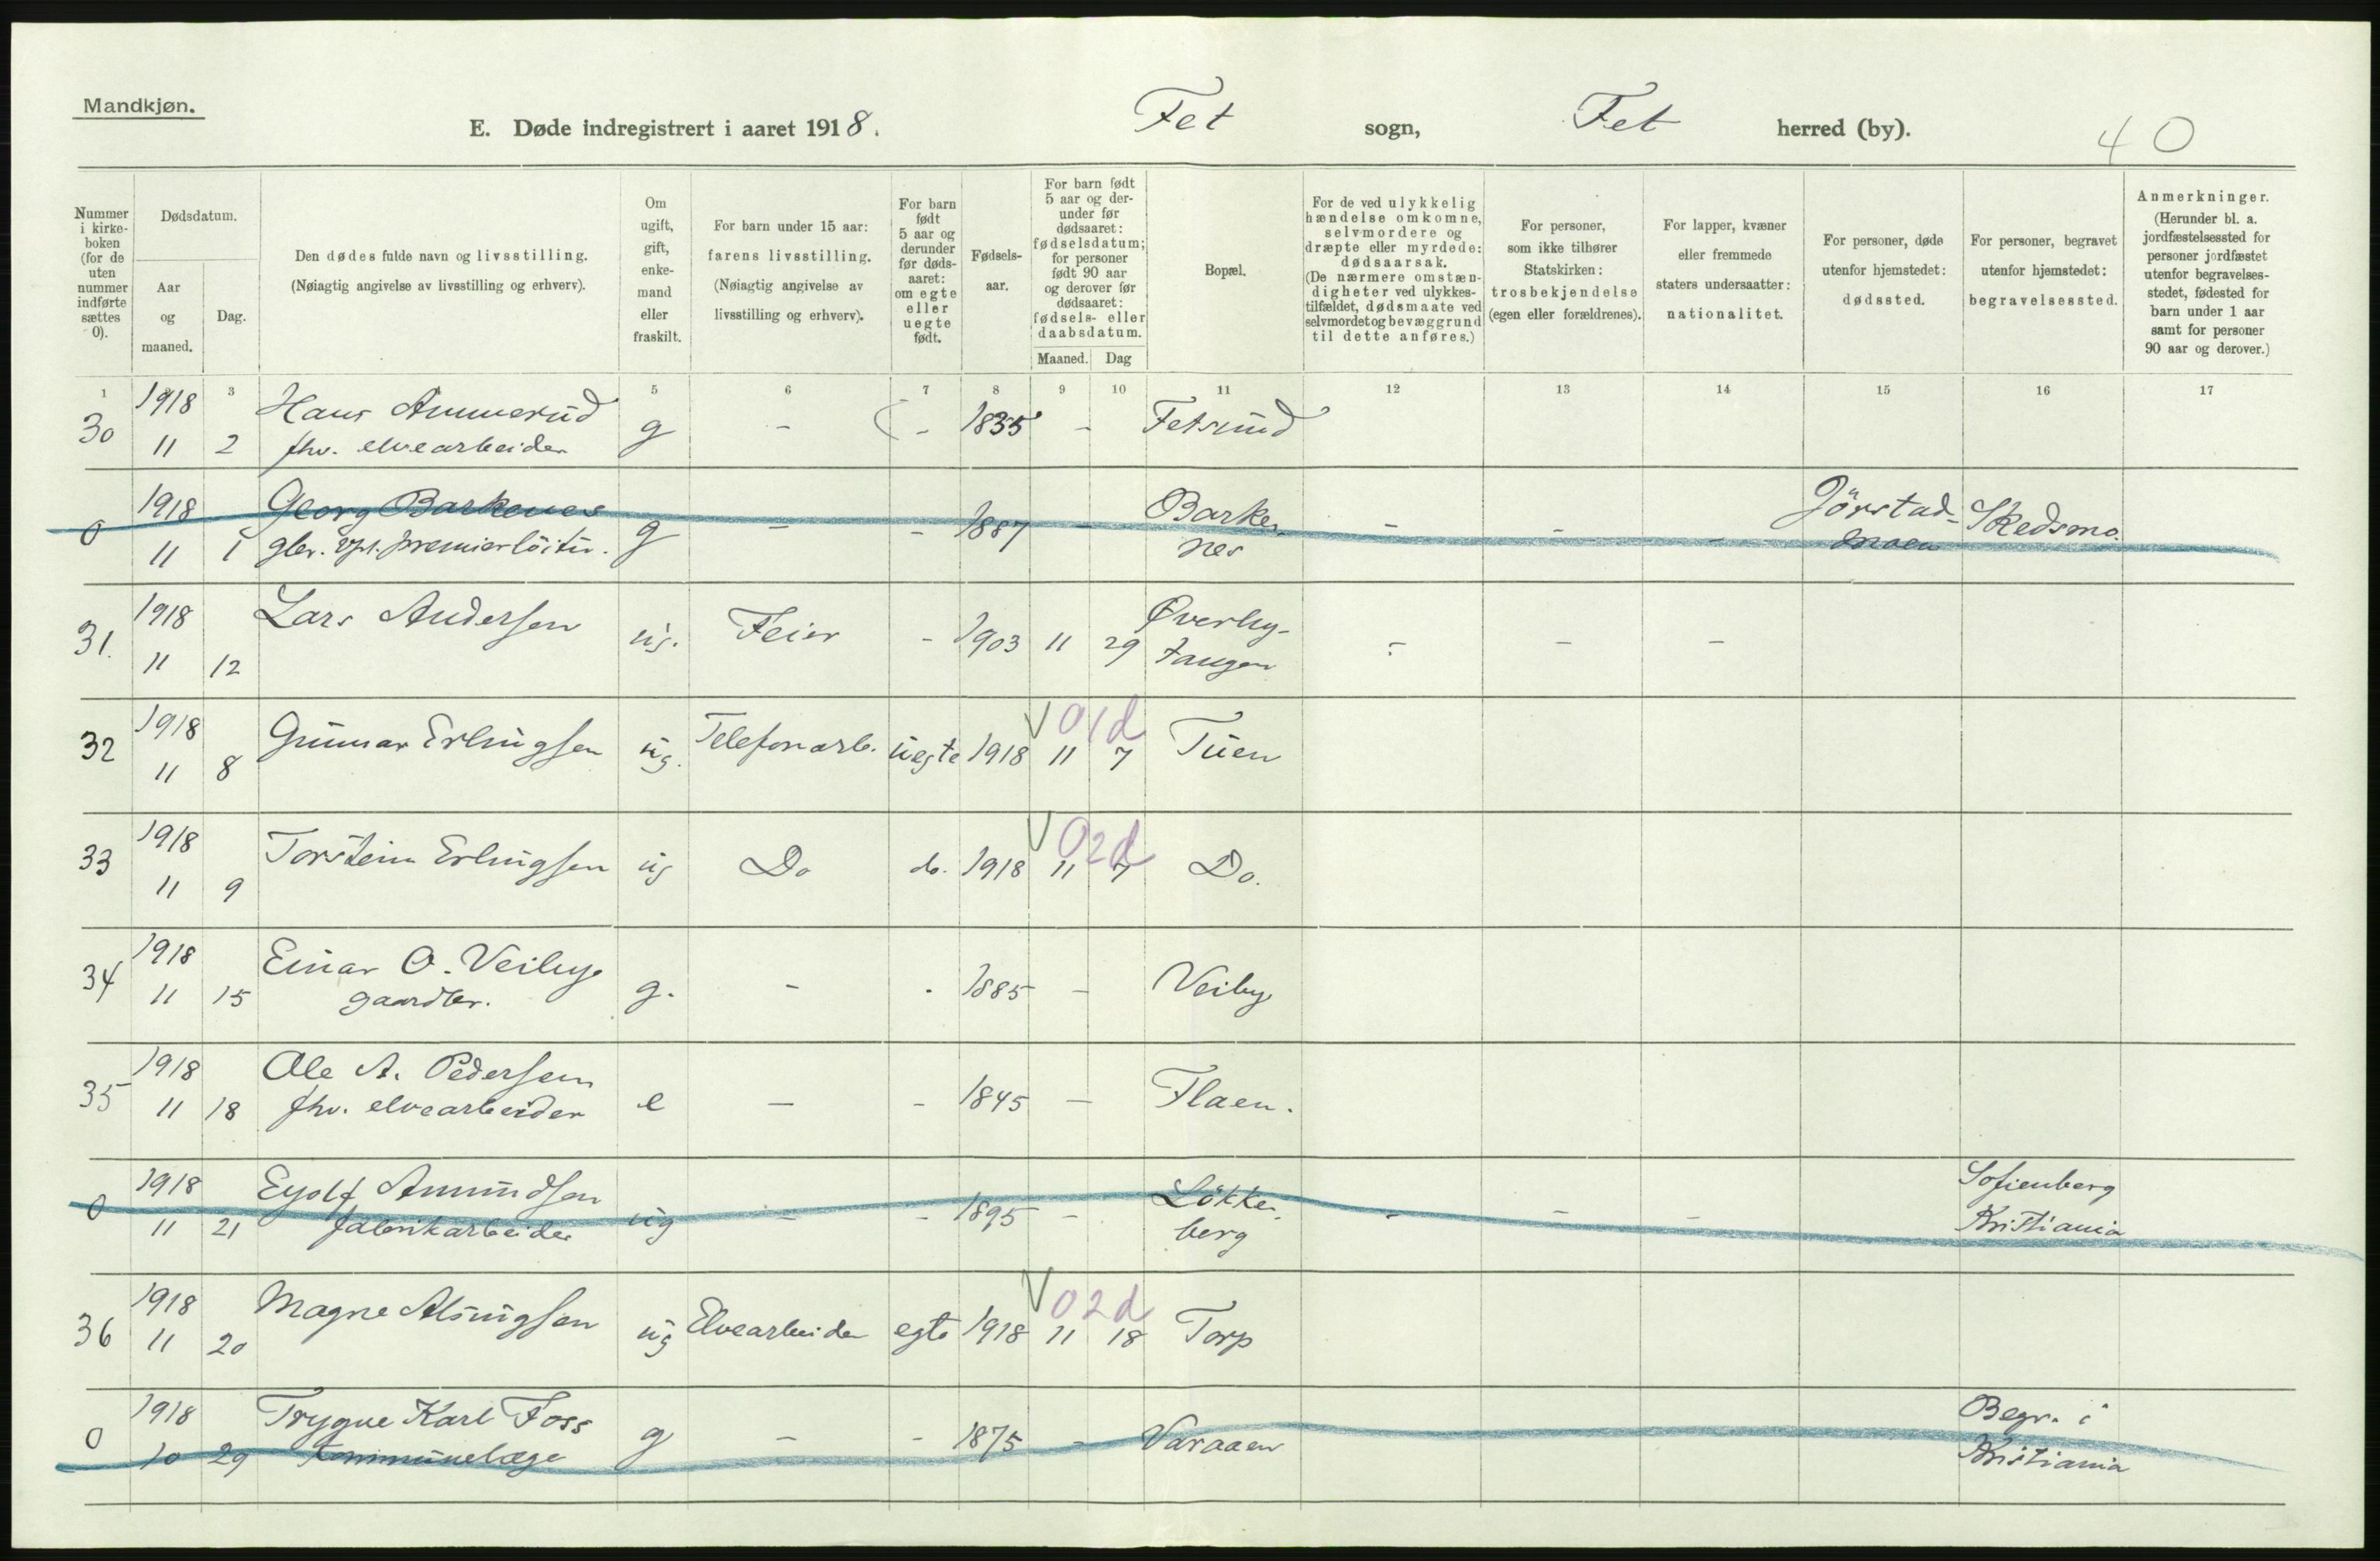 Mandkjøn.
E. Døde indregistrert i aaret 1918. Fet sogn, Fet herred (by). 40
Nummer i kirke-boken (for de uten nummer indførte sættes 0).
Dødsdatum.
Aar og maaned.
Dag.
Den dødes fulde navn og livsstilling. (Nøiagtig angivelse av livsstilling og erhverv).
Om ugift, gift, enke-mand eller fraskilt.
For barn under 15 aar: farens livsstilling. (Nøiagtig angivelse av livsstilling og erhverv).
For barn født 5 aar og derunder før døds-aaret: om egte eller uegte født.
Fødsels-aar.
For barn født 5 aar og der-under før dødsaaret: fødselsdatum; for personer født 90 aar og derover før dødsaaret: fødsels- eller daabsdatum.
Maaned. Dag
Bopæl.
For de ved ulykkelig hændelse omkomne, selvmordere og dræpte eller myrdede: dødsaarsak. (De nærmere omstæn-digheter ved ulykkes-tilfældet, dødsmaate ved selvmordet og bevæggrund til dette anføres.)
For personer, som ikke tilhører Statskirken: trosbekjendelse (egen eller forældrenes).
For lapper, kvæner eller fremmede staters undersaatter: nationalitet.
For personer, døde utenfor hjemstedet: dødssted.
For personer, begravet utenfor hjemstedet: begravelsessted.
Anmerkninger. (Herunder bl. a. jordfæstelsessted for personer jordfæstet utenfor begravelses-stedet, fødested for barn under 1 aar samt for personer 90 aar og derover.)
1 3 5 6 7 8 9 10 11 12 13 14 15 16 17
30 1918 Hans Ammerud g - - 1835 - Fetsund
11 2 fhv. elvearbeider
0 1918 Georg Barkenes g - - 1887 - Barke- - - - Jörstad- Skedsmo.
11 1 gbr. premierlöitn. nes moen
31. 1918 Lars Andersen ug. Feier - 1903 11 29 Överby- - - -
11 12 tangen
32 1918 Gunnar Erlingsen ug. Telefonarb. uegte 1918 V 01d 11 7 Tuen
11 8
33 1918 Torstein Erlingsen ug Do do. 1918 V 02d 11 7 Do.
11 9
34 1918 Einar O. Veiby g. - - 1885 - Veiby
11 15 gaardbr.
35 1918 Ole A. Pedersen e - - 1845 - Flaen.
11 18 fhv. elvearbeider
0 1918 Eyolf Amundsen ug - - 1895 - Lökke- - - - Sofienberg
11 21 fabrikarbeider berg Kristiania
36 1918 Magne Alsingsen ug Elvearbeider egte 1918 V 02d 11 18 Torp
11 20
0 1918 Trygve Karl Foss g - - 1875 - Varaaen Begr. i
10 29 Kommunelæge Kristiania